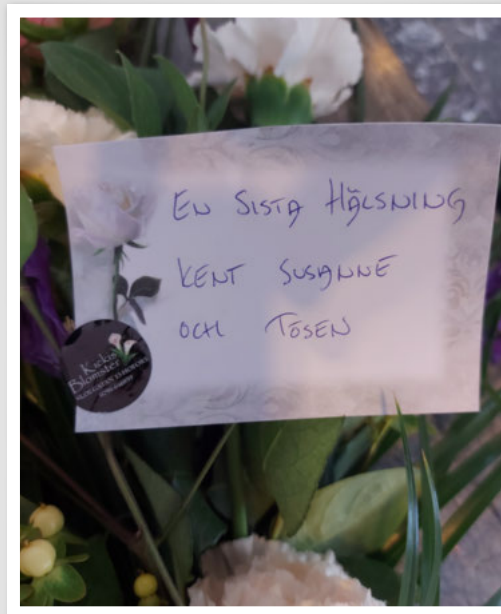 EN SISTA HÄLSNING
KENT SUSANNE
OCH TÖSEN
Kickis
Blomster